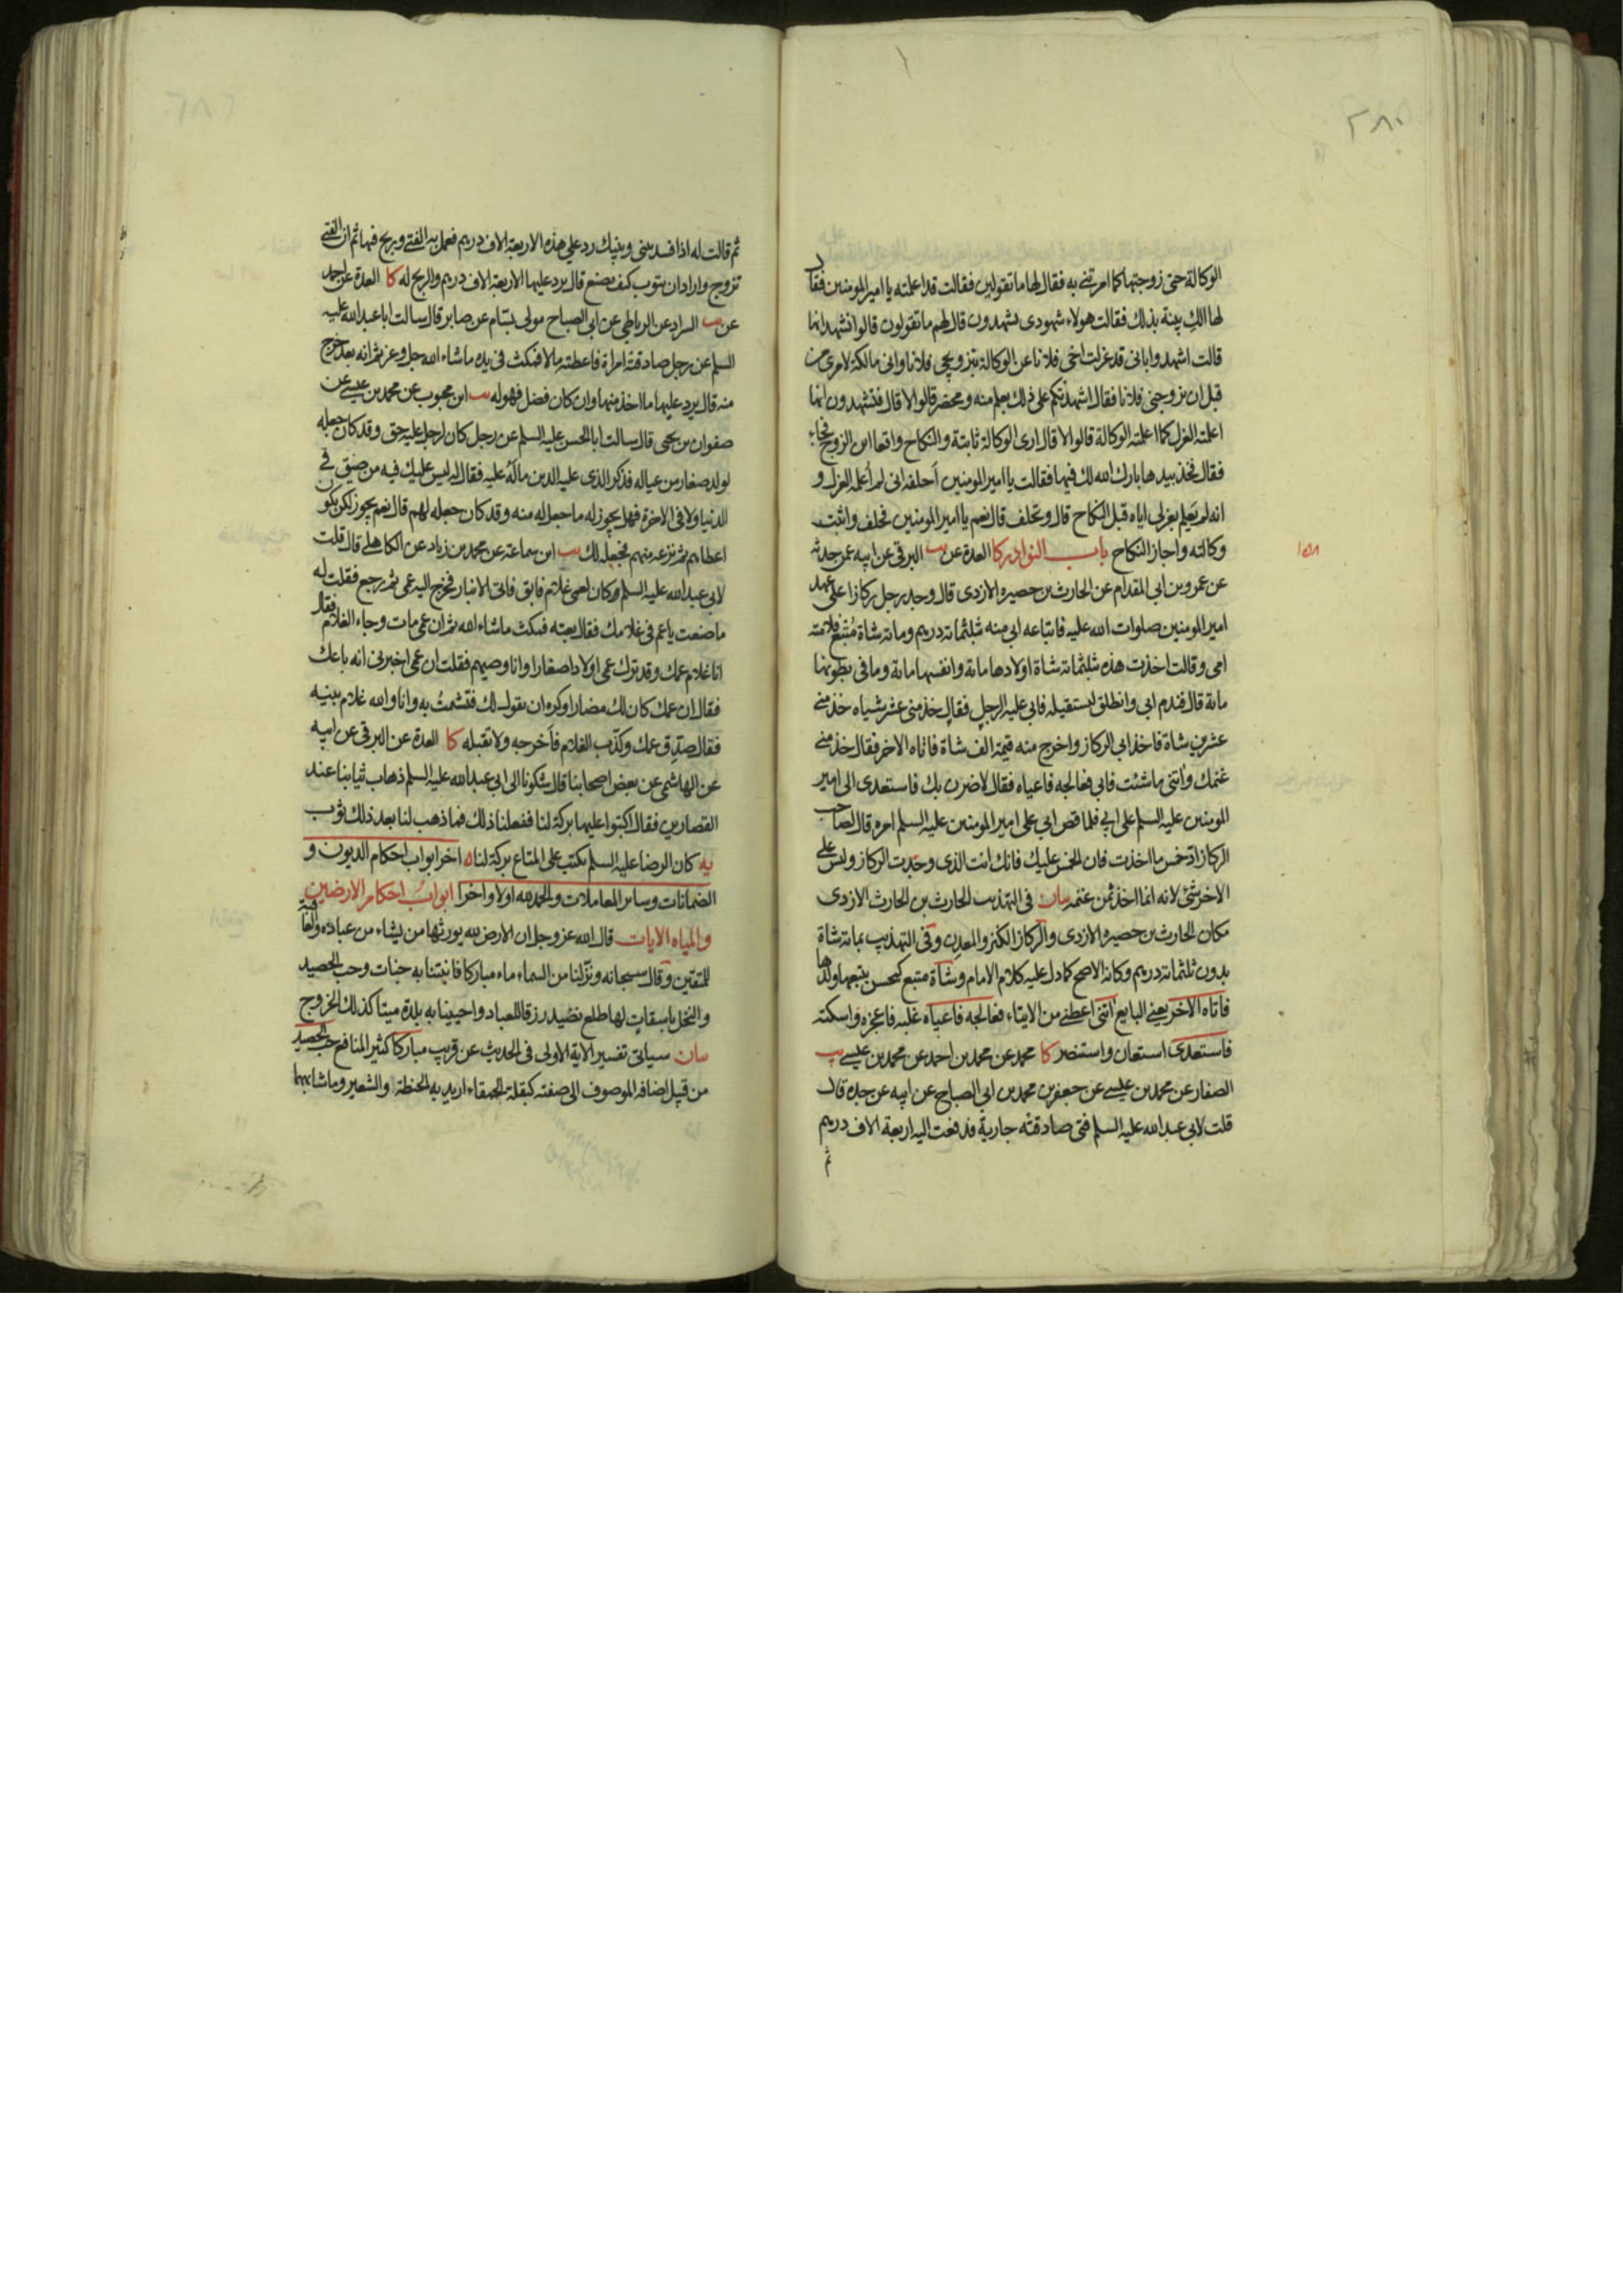 ٢٨٠
الوكالة حتى زوجتها كما امرتني به فقال لها ما تقولين فقالت قد اعلمته يا امير المومنين فقال
لها الك بينة بذلك فقالت هولاء شهودى يشهدون قال لهم ما تقولون قالوا نشهد انها
قالت اشهدوا باني قد عزلت اخى فلانا عن الوكالة بتزويجى فلانا واني مالكة لامرى من
قبل ان يزوجنى فلانا فقال اشهدتكم على ذلك بعلم منه ومحضر قالوا لا قال فتشهدون انها
اعلمته العزل كما اعلمته الوكالة قالوا لا قال ارى الوكالة ثابتة والنكاح واقعا اين الزوج فجاء
فقال خذ بيدها بارك الله لك فيها فقالت يا امير المومنين احلفه اني لم اعلمه العزل و
انه لم يعلم بعزلي اياه قبل النكاح قال وتحلف قال نعم يا امير المومنين فحلف واثبت
وكالته واجاز النكاح باب النوادر كا العدة عن يب البرقي عن ابيه عمن حدثه
١٥٨
عن عمرو بن ابي المقدام عن الحارث بن حصيره الازدى قال وجد رجل ركازا على عهد
امير المومنين صلوات الله عليه فابتاعه ابي منه بثلثمائة درهم ومائة شاة متبع فلامته
امى وقالت اخذت هذه بثلثمائة شاة اولادها مائة وانفسها مائة وما في بطونها
مائة قال فندم ابي وانطلق ليستقيله فابي عليه الرجل فقال خذ منى عشر شياه خذ منى
عشرين شاة فاخذ ابي الركاز واخرج منه قيمة الف شاة فاتاه الاخر فقال خذ منى
غنمك واتنى ما شئت فابي فعالجه فاعياه فقال لاضرن بك فاستعدى الى امير
المومنين عليه السلم على ابي فلما قص ابي على امير المومنين عليه السلم امره قال لصاحب
الركاز اد خمس ما اخذت فان الخمس عليك فانك انت الذى وجدت الركاز وليس على
الاخر شئ لانه انما اخذ ثمن غنمه بيان في التهذيب الحارث بن الحارث الازدى
مكان الحارث بن حصيره الازدى والركاز الكنز والمعدن وفي التهذيب بمائة شاة
بدون ثلثمائة درهم وكانه الاصح كما دل عليه كلام الامام وشاة متبع كمحسن يتبعها ولدها
فاتاه الاخر يعنى البايع اتنى اعطنى من الايتاء فعالجه فاعياه غلبه فاعجزه واسكته
فاستعدى استعان واستنصر كا محمد عن محمد بن احمد عن محمد بن عيسى يب
الصفار عن محمد بن عيسى عن جعفر بن محمد بن ابي الصباح عن ابيه عن جده قال
قلت لابي عبد الله عليه السلم فتى صادقته جارية فدفعت اليه اربعة الاف درهم
ثم
ثم قالت له اذا فسد بيني وبينك رد على هذه الاربعة الاف درهم فعمل به الفتى وربح فيها ثم ان الفتى
تزوج واراد ان يتوب كيف يصنع قال يرد عليها الاربعة الاف درهم والربح له كا العدة عن احمد
عن يب السراد عن الرباطي عن ابي الصباح مولى بسام عن صابر قال سالت ابا عبد الله عليه
السلم عن رجل صادقته امراة فاعطته مالا فمكث في يده ما شاء الله جل وعز ثم انه بعد خرج
منه قال يرد عليها ما اخذ منها وان كان فضل فهو له يب ابن محبوب عن محمد بن عيسى عن
صفوان بن يحيى قال سالت ابا الحسن عليه السلم عن رجل كان لرجل عليه حق وقد كان جعله
لولد صغار من عياله فذكر الذى عليه الدين ماله عليه فقال اليه ليس عليك فيه من ضيق في
الدنيا ولا في الاخرة فهل يجوز له ما جعل له منه وقد كان جعله لهم قال نعم يجوز لكن يكون
اعطاهم ثم نزعه منهم فجعله لك يب ابن سماعته عن محمد بن زياد عن الكاهلى قال قلت
لابي عبد الله عليه السلم كان لعمى غلام فابق فاتى الانبار فخرج اليه عمى ثم رجع فقلت له
ما صنعت يا عم في غلامك فقال بعته فمكث ما شاء الله ثم ان عمى مات وجاء الغلام فقال
انا غلام عمك وقد ترك عمى اولادا صغارا وانا وصيهم فقلت ان عمى اخبرنى انه باعك
فقال ان عمك كان لك مضارا وكره ان يقول لك فتشمت به وانا والله غلام بنيه
فقال صدق عمك وكذب الغلام فاخرجه ولا تقبله كا العدة عن البرقى عن ابيه
عن الهاشمى عن بعض اصحابنا قال شكونا الى ابي عبد الله عليه السلم ذهاب ثيابنا عند
القصارين فقال اكتبوا عليها بركة لنا ففعلنا ذلك فما ذهب لنا بعد ذلك ثوب
يه كان الرضا عليه السلم يكتب على المتاع بركة لنا اخر ابواب احكام الديون و
الضمانات وساير المعاملات والحمد لله اولا واخرا ابواب احكام الارضين
والمياه الايات قال الله عز وجل ان الارض لله يورثها من يشاء من عباده والعاقبة
للمتقين وقال سبحانه ونزلنا من السماء ماء مباركا فانبتنا به جنات وحب الحصيد
والنخل باسقات لها طلع نضيد رزقا للعباد واحيينا به بلدة ميتا كذلك الخروج
بيان سياتي تفسير الاية الاولى في الحديث عن قريب مباركا كثير المنافع حب الحصيد
من قبيل اضافه الموصوف الى صفته كبقلة الحمقاء اريد به الحنطة والشعير وما شابهها